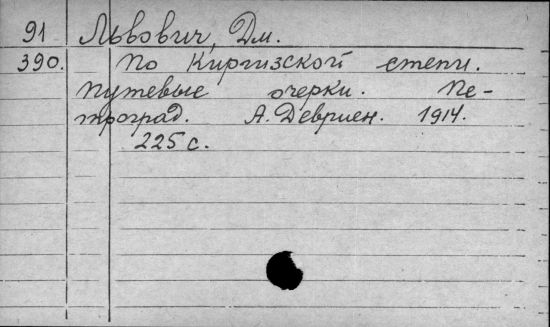 91 Львович, Дм.
390. По Киргизской степи.
Путевые очерки. Пе-
троград. А. Девриен. 1914.
225 с.